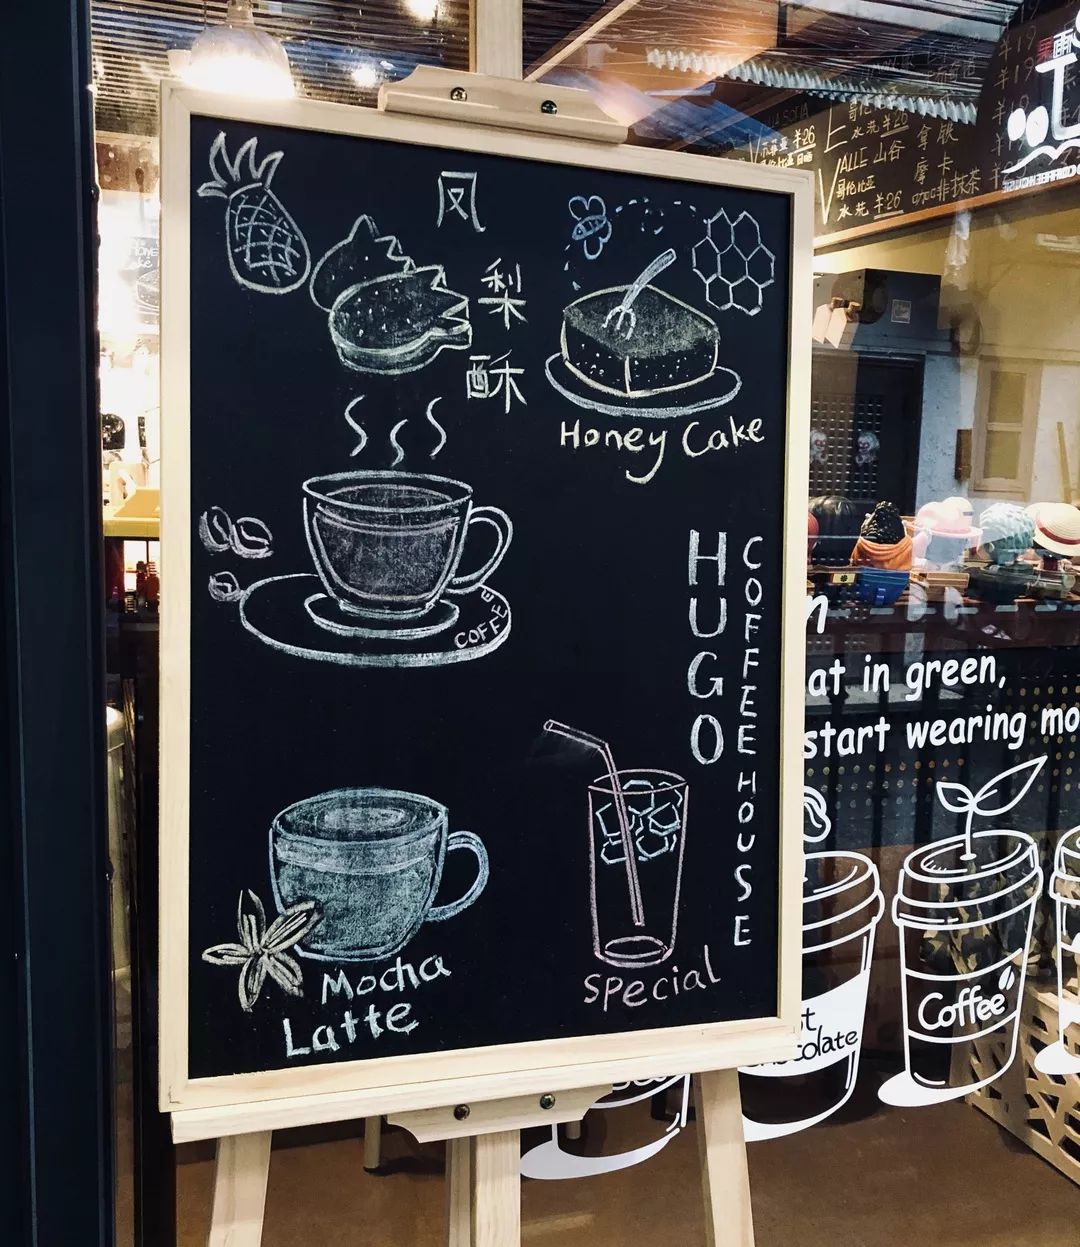 凤
梨
酥
Honey Cake
COFFEE
HUGO
COFFEE HOUSE
Mocha
Latte
Special
¥26
水洗 ¥26
VALLE 山谷
哥伦比亚
水洗 ¥26
拿铁
摩卡
咖啡抹茶
¥19
¥19
COFFEE HOUSE
at in green,
start wearing mo
Coffee
st
colate